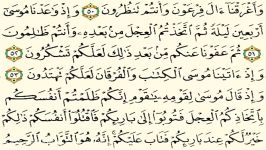 وَأَغْرَقْنَآ ءَالَ فِرْعَوْنَ وَأَنتُمْ تَنظُرُونَ ٥٠ وَإِذْ وَٰعَدْنَا مُوسَىٰٓ
أَرْبَعِينَ لَيْلَةً ثُمَّ ٱتَّخَذْتُمُ ٱلْعِجْلَ مِنۢ بَعْدِهِۦ وَأَنتُمْ ظَٰلِمُونَ
٥١ ثُمَّ عَفَوْنَا عَنكُم مِّنۢ بَعْدِ ذَٰلِكَ لَعَلَّكُمْ تَشْكُرُونَ ٥٢
وَإِذْ ءَاتَيْنَا مُوسَى ٱلْكِتَٰبَ وَٱلْفُرْقَانَ لَعَلَّكُمْ تَهْتَدُونَ ٥٣
وَإِذْ قَالَ مُوسَىٰ لِقَوْمِهِۦ يَٰقَوْمِ إِنَّكُمْ ظَلَمْتُمْ أَنفُسَكُم
بِٱتِّخَاذِكُمُ ٱلْعِجْلَ فَتُوبُوٓا۟ إِلَىٰ بَارِئِكُمْ فَٱقْتُلُوٓا۟ أَنفُسَكُمْ ذَٰلِكُمْ
خَيْرٌ لَّكُمْ عِندَ بَارِئِكُمْ فَتَابَ عَلَيْكُمْ إِنَّهُۥ هُوَ ٱلتَّوَّابُ ٱلرَّحِيمُ